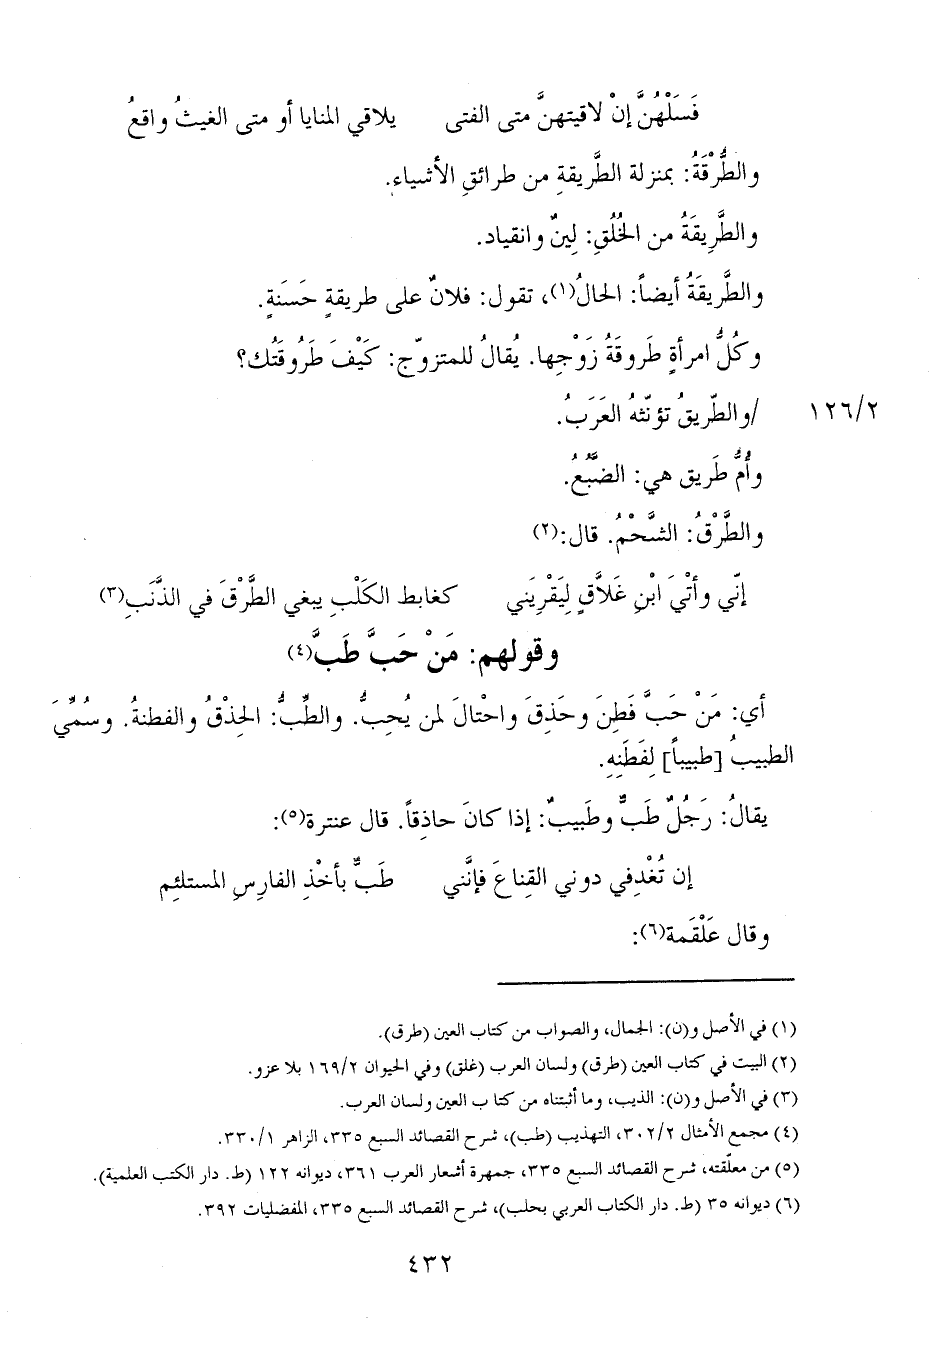 فَسَلْهُنَّ إنْ لاقيتهنَّ متى الفتى يلاقي المنايا أو متى الغيثُ واقعُ
والطُّرْقَةُ: بمنزلة الطَّريقةِ من طرائقِ الأشياء.
والطَّرِيقَةُ من الخُلُقِ: لِينٌ وانقياد.
والطَّريقَةُ أيضاً: الحالُ(١)، تقول: فلانٌ على طريقةٍ حَسَنَةٍ.
وكُلُّ امرأةٍ طَروقَةُ زَوْجِها. يُقالُ للمتزوّج: كَيْفَ طَرُوقَتُك؟
١٢٦/٢ /والطّريقُ تؤنّثهُ العَرَبُ.
وأُمُّ طَريق هي: الضَّبُعُ.
والطَّرْقُ: الشَّحْمُ. قال:(٢)
إنّي وأتْيَ ابْنِ غَلاَّقٍ لِيَقْرِيَني كغابط الكَلْبِ يبغي الطَّرْقَ في الذَّنَبِ(٣)
وقولهم: مَنْ حَبَّ طَبَّ(٤)
أي: مَنْ حَبَّ فَطِنَ وحَذِقَ واحْتالَ لمن يُحِبُّ. والطِّبُّ: الحِذْقُ والفطنةُ. وسُمِّيَ
الطبيبُ [طبيباً] لِفَطَنِهِ.
يقالُ: رَجُلٌ طَبٌّ وطَبيبٌ: إذا كانَ حاذِقاً. قال عنترة(٥):
إن تُغْدِفي دوني القِناعَ فإنَّني طَبٌّ بأخْذِ الفارِسِ المستلئِم
وقال عَلْقَمة(٦):
(١) في الأصل و(ن): الجمال، والصواب من كتاب العين (طرق).
(٢) البيت في كتاب العين (طرق) ولسان العرب (غلق) وفي الحيوان ١٦٩/٢ بلا عزو.
(٣) في الأصل و(ن): الذيب، وما أثبتناه من كتاب العين ولسان العرب.
(٤) مجمع الأمثال ٣٠٢/٢، التهذيب (طب)، شرح القصائد السبع ٣٣٥، الزاهر ٣٣٠/١.
(٥) من معلّقته، شرح القصائد السبع ٣٣٥، جمهرة أشعار العرب ٣٦١، ديوانه ١٢٢ (ط. دار الكتب العلمية).
(٦) ديوانه ٣٥ (ط. دار الكتاب العربي بحلب)، شرح القصائد السبع ٣٣٥، المفضليات ٣٩٢.
٤٣٢